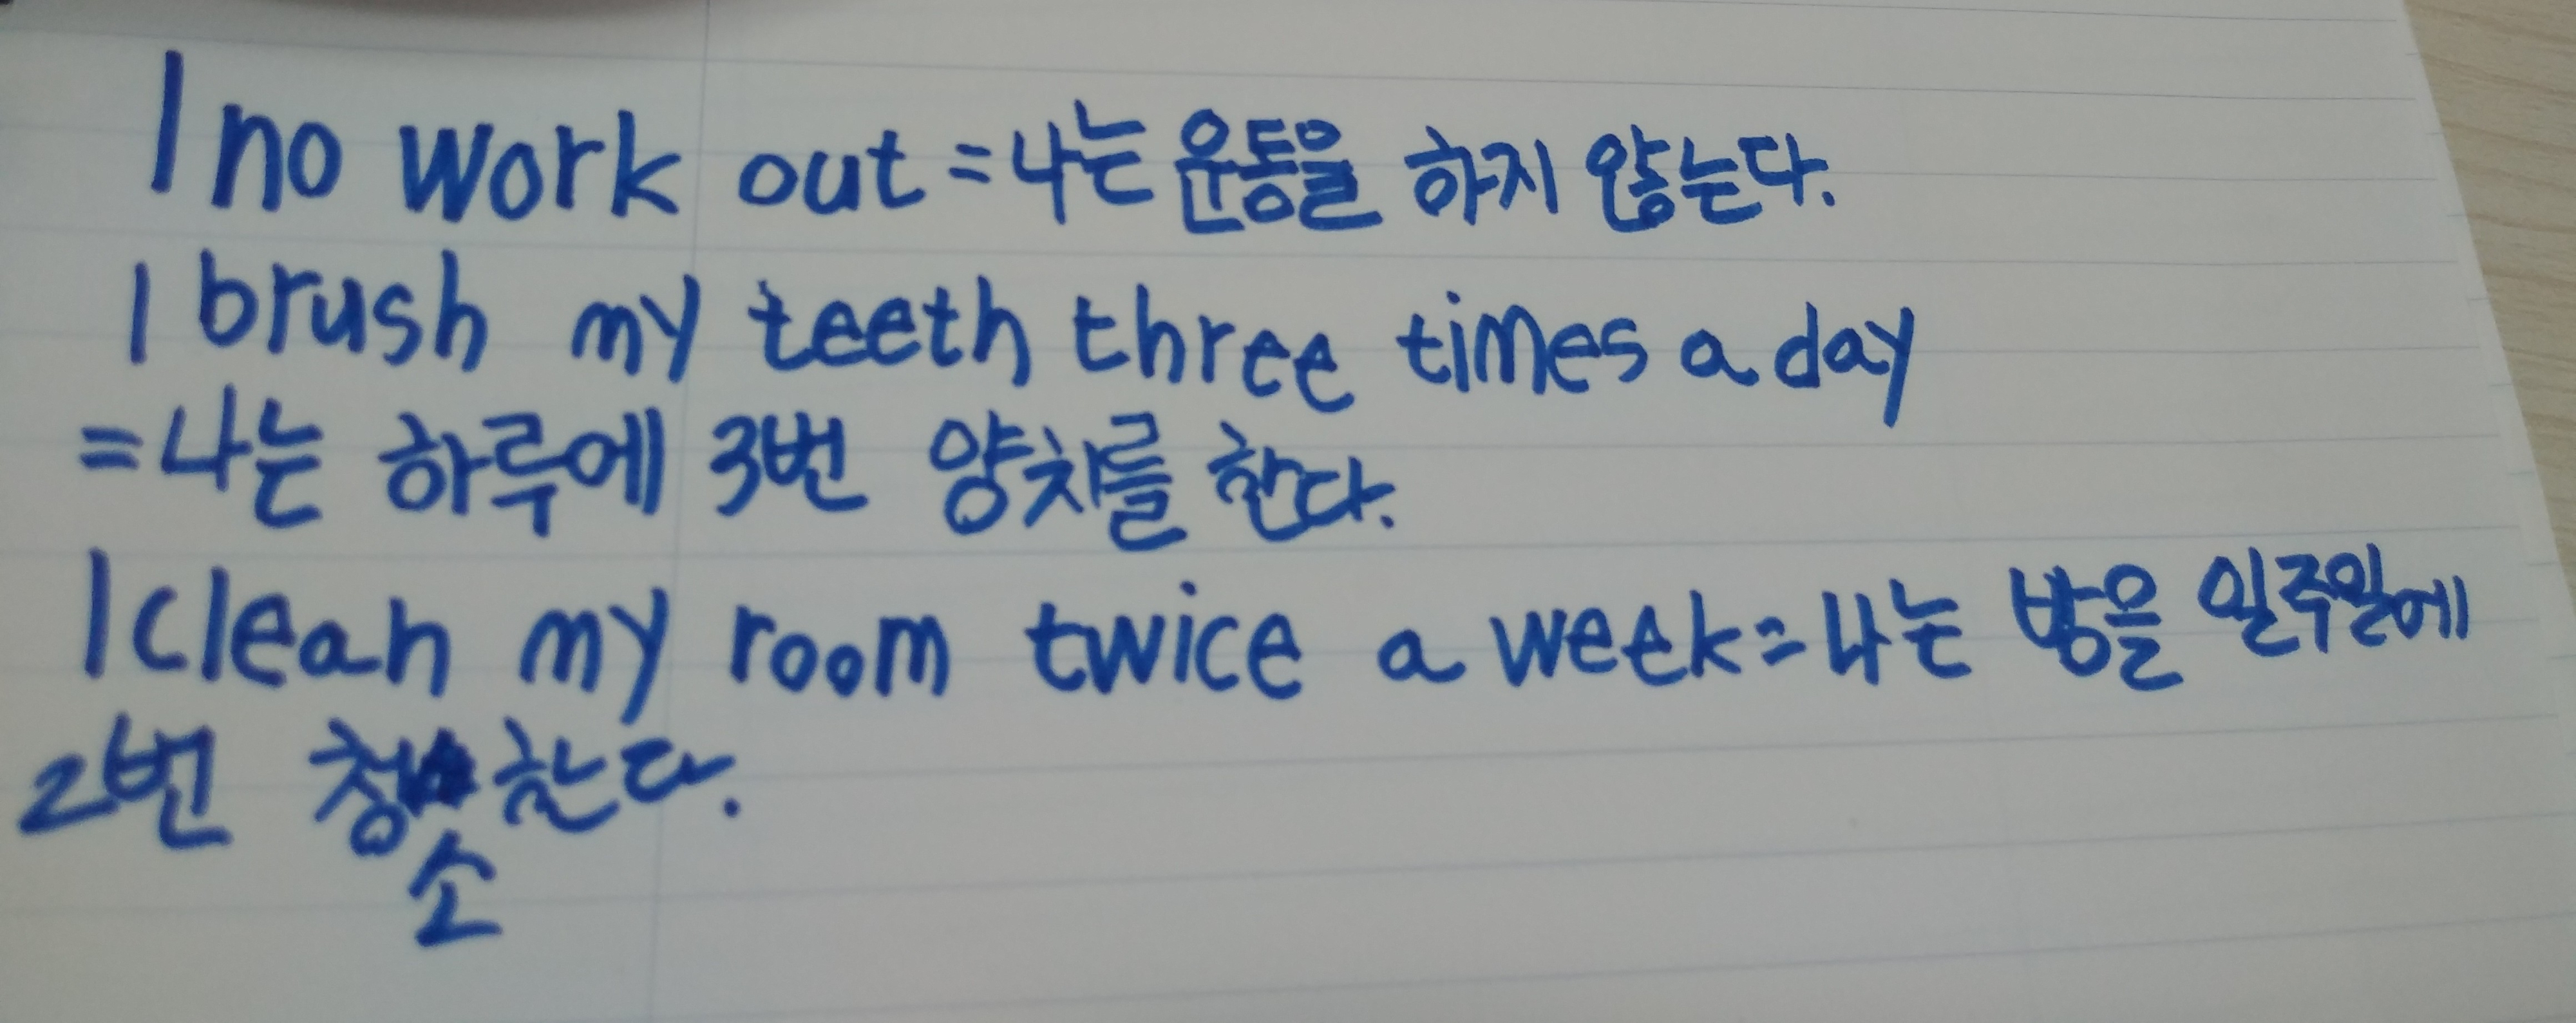 I no work out = 나는 운동을 하지 않는다.
I brush my teeth three times a day
= 나는 하루에 3번 양치를 한다.
I clean my room twice a week = 나는 방을 일주일에
2번 청 한다.
소